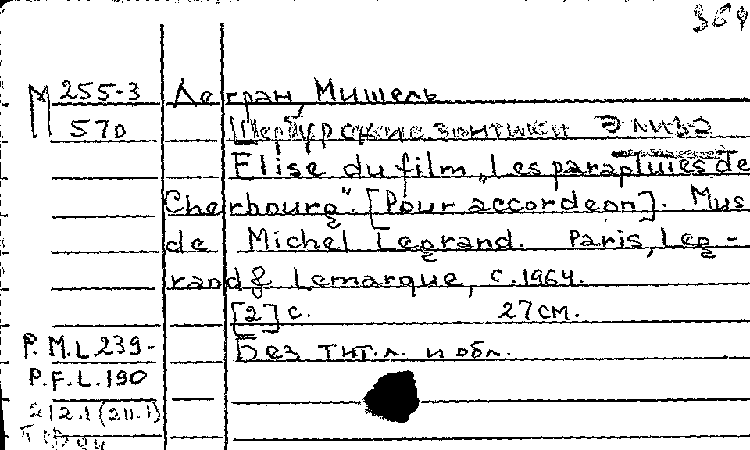 364
М 255-3 Легран, Мишель
570 Шербурские зонтики Элиза
Elise du film „Les parapluies de
Cherbourg". [Pour accordeon]. Mus
de Michel Legrand. Paris, Leg-
rand & Lemarque, c. 1964.
[2] с. 27 см.
P.M.L 239- Без тит.л. и обл.
P.F.L. 190
212.1 (211.1)